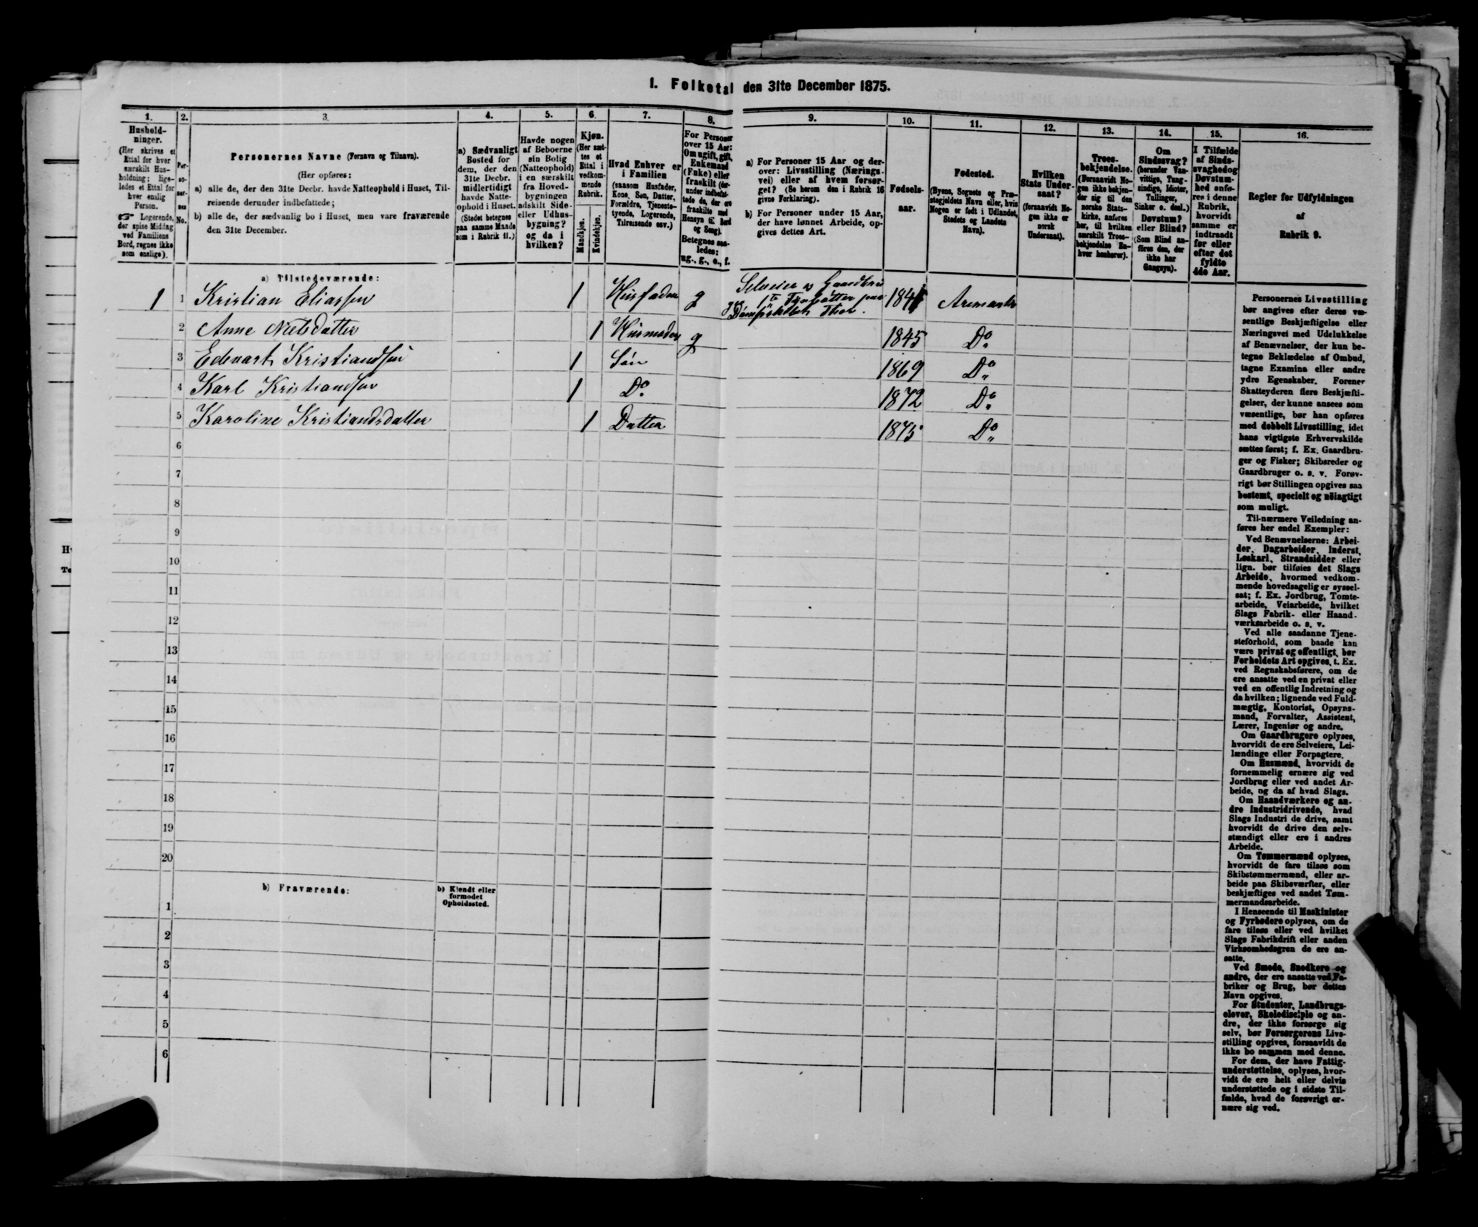 1. Folketal den 31te December 1875.
1.
2.
3.
4.
5.
6.
7.
8.
9.
10.
11.
12.
13.
14.
15.
16.
Hushold-
ninger.
(Her skrives et
Ettal for hver
særskilt Hus-
holdning; lige-
ledes et Ettal for
hver enslig
Person.
Logerende,
der spise Middag
ved Familiens
Bord, regnes ikke
som enslige).
Per-
so-
ner-
nes
No.
Personernes Navne (Fornavn og Tilnavn).
(Her opføres:
a) alle de, der den 31te Decbr. havde Natteophold i Huset, Til-
reisende derunder indbefattede;
b) alle de, der sædvanlig bo i Huset, men vare fraværende
den 31te December.
a) Sædvanligt
Bosted for
dem, der den
31te Decbr.
midlertidigt
havde Natte-
ophold i Huset.
(Stedet betegnes
paa samme Maade
som i Rubrik 11.)
Havde nogen
af Beboerne
sin Bolig
(Natteophold)
i en særskilt
fra Hoved-
bygningen
adskilt Side-
eller Udhus-
bygning?
og da i
hvilken?
Kjøn.
(Her sæt-
tes et
Ettal i
vedkom-
mende
Rubrik.
Mandkjøn.
Kvindekjøn.
Hvad Enhver er
i Familien
(saasom Husfader,
Kone, Søn, Datter,
Forældre, Tjeneste-
tyende, Logerende,
Tilreisende osv.).
For Personer
over 15 Aar:
Om ugift, gift,
Enkemand
(Enke) eller
fraskilt
Betegnes saa-
ledes:
ug., g., e., f.
a) For Personer 15 Aar og der-
over: Livsstilling (Nærings-
vei) eller af hvem forsør-
get? (Se herom den i Rubrik 16
givne Forklaring).
b) For Personer under 15 Aar,
der have lønnet Arbeide, op-
gives dettes Art.
Fødsels-
aar.
Fødested.
(Byens, Sognets og Præ-
stegjeldets Navn eller, hvis
Nogen er født i Udlandet,
Stedets og Landets
Navn).
Hvilken
Stats Under-
saat?
(forsaavidt No-
gen ikke er
norsk
Undersaat).
Troes-
bekjendelse.
(Forsaavidt No-
gen ikke bekjen-
der sig til den
norske Stats-
kirke, anføres
her, til hvilken
særskilt Troes-
bekjendelse En-
hver henhører).
Om
Sindssvag?
(herunder Van-
vittige, Tung-
sindige, Idioter,
Tullinger,
Sinker o. desl.)
Døvstum?
eller Blind?
(Som Blind an-
føres den, der
ikke har
Gangsyn).
I Tilfælde
af Sinds-
svaghed og
Døvstum-
hed anfø-
res i denne
Rubrik,
hvorvidt
samme er
indtraadt
før eller
efter det
fyldte
4de Aar.
Regler for Udfyldningen
af
Rubrik 9.
a) Tilstedeværende:
1 1 Kristian Eliassen 1 Husfader g Selveier 1841 Aremark
2 Anne Nielsdatter 1 Husmoder g 1845 Do
3 Edvart Kristiansen 1 Søn 1869 Do
4 Karl Kristiansen 1 Do 1872 Do
5 Karoline Kristiansdatter 1 Datter 1875 Do
6
7
8
9
10
11
12
13
14
15
16
17
18
19
20
b) Fraværende:
b) Kjendt eller
formodet
Opholdssted.
1
2
3
4
5
6
Personernes Livsstilling
bør angives efter deres væ-
sentlige Beskjæftigelse eller
Næringsvei med Udelukkelse
af Benævnelser, der kun be-
tegne Beklædelse af Ombud,
tagne Examina eller andre
ydre Egenskaber. Forener
Skatteyderen flere Beskjæfti-
gelser, der kunne ansees som
væsentlige, bør han opføres
med dobbelt Livsstilling, idet
hans vigtigste Erhvervskilde
sættes først; f. Ex. Gaardbru-
ger og Fisker; Skibsreder og
Gaardbruger o. s. v. Forøv-
rigt bør Stillingen opgives saa
bestemt, specielt og nöiagtigt
som muligt.
Til nærmere Veiledning an-
føres her endel Exempler:
Ved Benævnelserne: Arbei-
der, Dagarbeider, Inderst,
Løskarl, Strandsidder eller
lign. bør tilføies det Slags
Arbeide, hvormed vedkom-
mende hovedsagelig er syssel-
sat; f. Ex. Jordbrug, Tomte-
arbeide, Veiarbeide, hvilket
Slags Fabrik- eller Haand-
værksarbeide o. s. v.
Ved alle saadanne Tjene-
steforhold, som baade kan
være privat og offentligt, bør
Forholdets Art opgives, t. Ex.
ved Regnskabsførere, om de
ere ansatte ved en privat eller
ved en offentlig Indretning og
da hvilken; lignende ved Fuld-
mægtig, Kontorist, Opsyns-
mand, Forvalter, Assistent,
Lærer, Ingeniør og andre.
Om Gaardbrugere oplyses,
hvorvidt de ere Selveiere, Lei-
lændinge eller Forpagtere.
Om Husmænd, hvorvidt de
fornemmelig ernære sig ved
Jordbrug eller ved andet Ar-
beide, og da af hvad Slags.
Om Haandværkere og an-
dre Industridrivende, hvad
Slags Industri de drive, samt
hvorvidt de drive den selv-
stændigt eller ere i andres
Arbeide.
Om Tømmermænd oplyses,
hvorvidt de fare tilsøs som
Skibstømmermænd, eller ar-
beide paa Skibsværfter, eller
beskjæftiges ved andet Tøm-
mermandsarbeide.
I Henseende til Maskinister
og Fyrbødere oplyses, om de
fare tilsøs eller ved hvilket
Slags Fabrikdrift eller anden
Virksomhedsgren de ere an-
satte.
Ved Smede, Snedkere og
andre, der ere ansatte ved Fa-
briker og Brug, bør dettes
Navn opgives.
For Studenter, Landbrugs-
elever, Skoledisciple og an-
dre, der ikke forsørge sig
selv, bør Forsørgerens Livs-
stilling opgives, forsaavidt de
ikke bo sammen med denne.
For dem, der have Fattig-
understøttelse, oplyses, hvor-
vidt de ere helt eller delvis
understøttede og i sidste Til-
fælde, hvad de forøvrigt er-
nære sig ved.